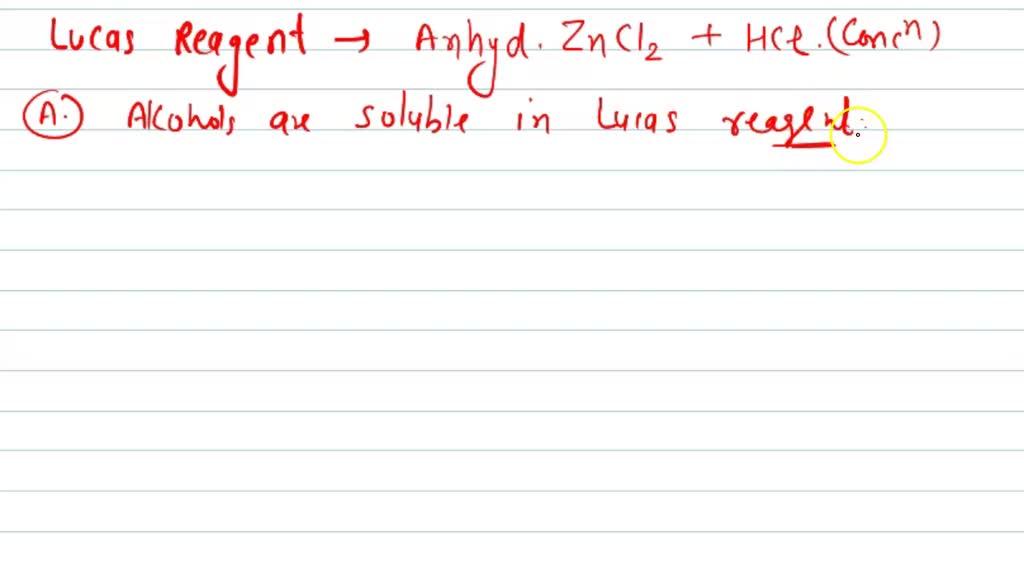 Lucas Reagent → Anhyd. ZnCl₂ + HCl. (Concⁿ)
(A.) Alcohols are soluble in Lucas reagent.